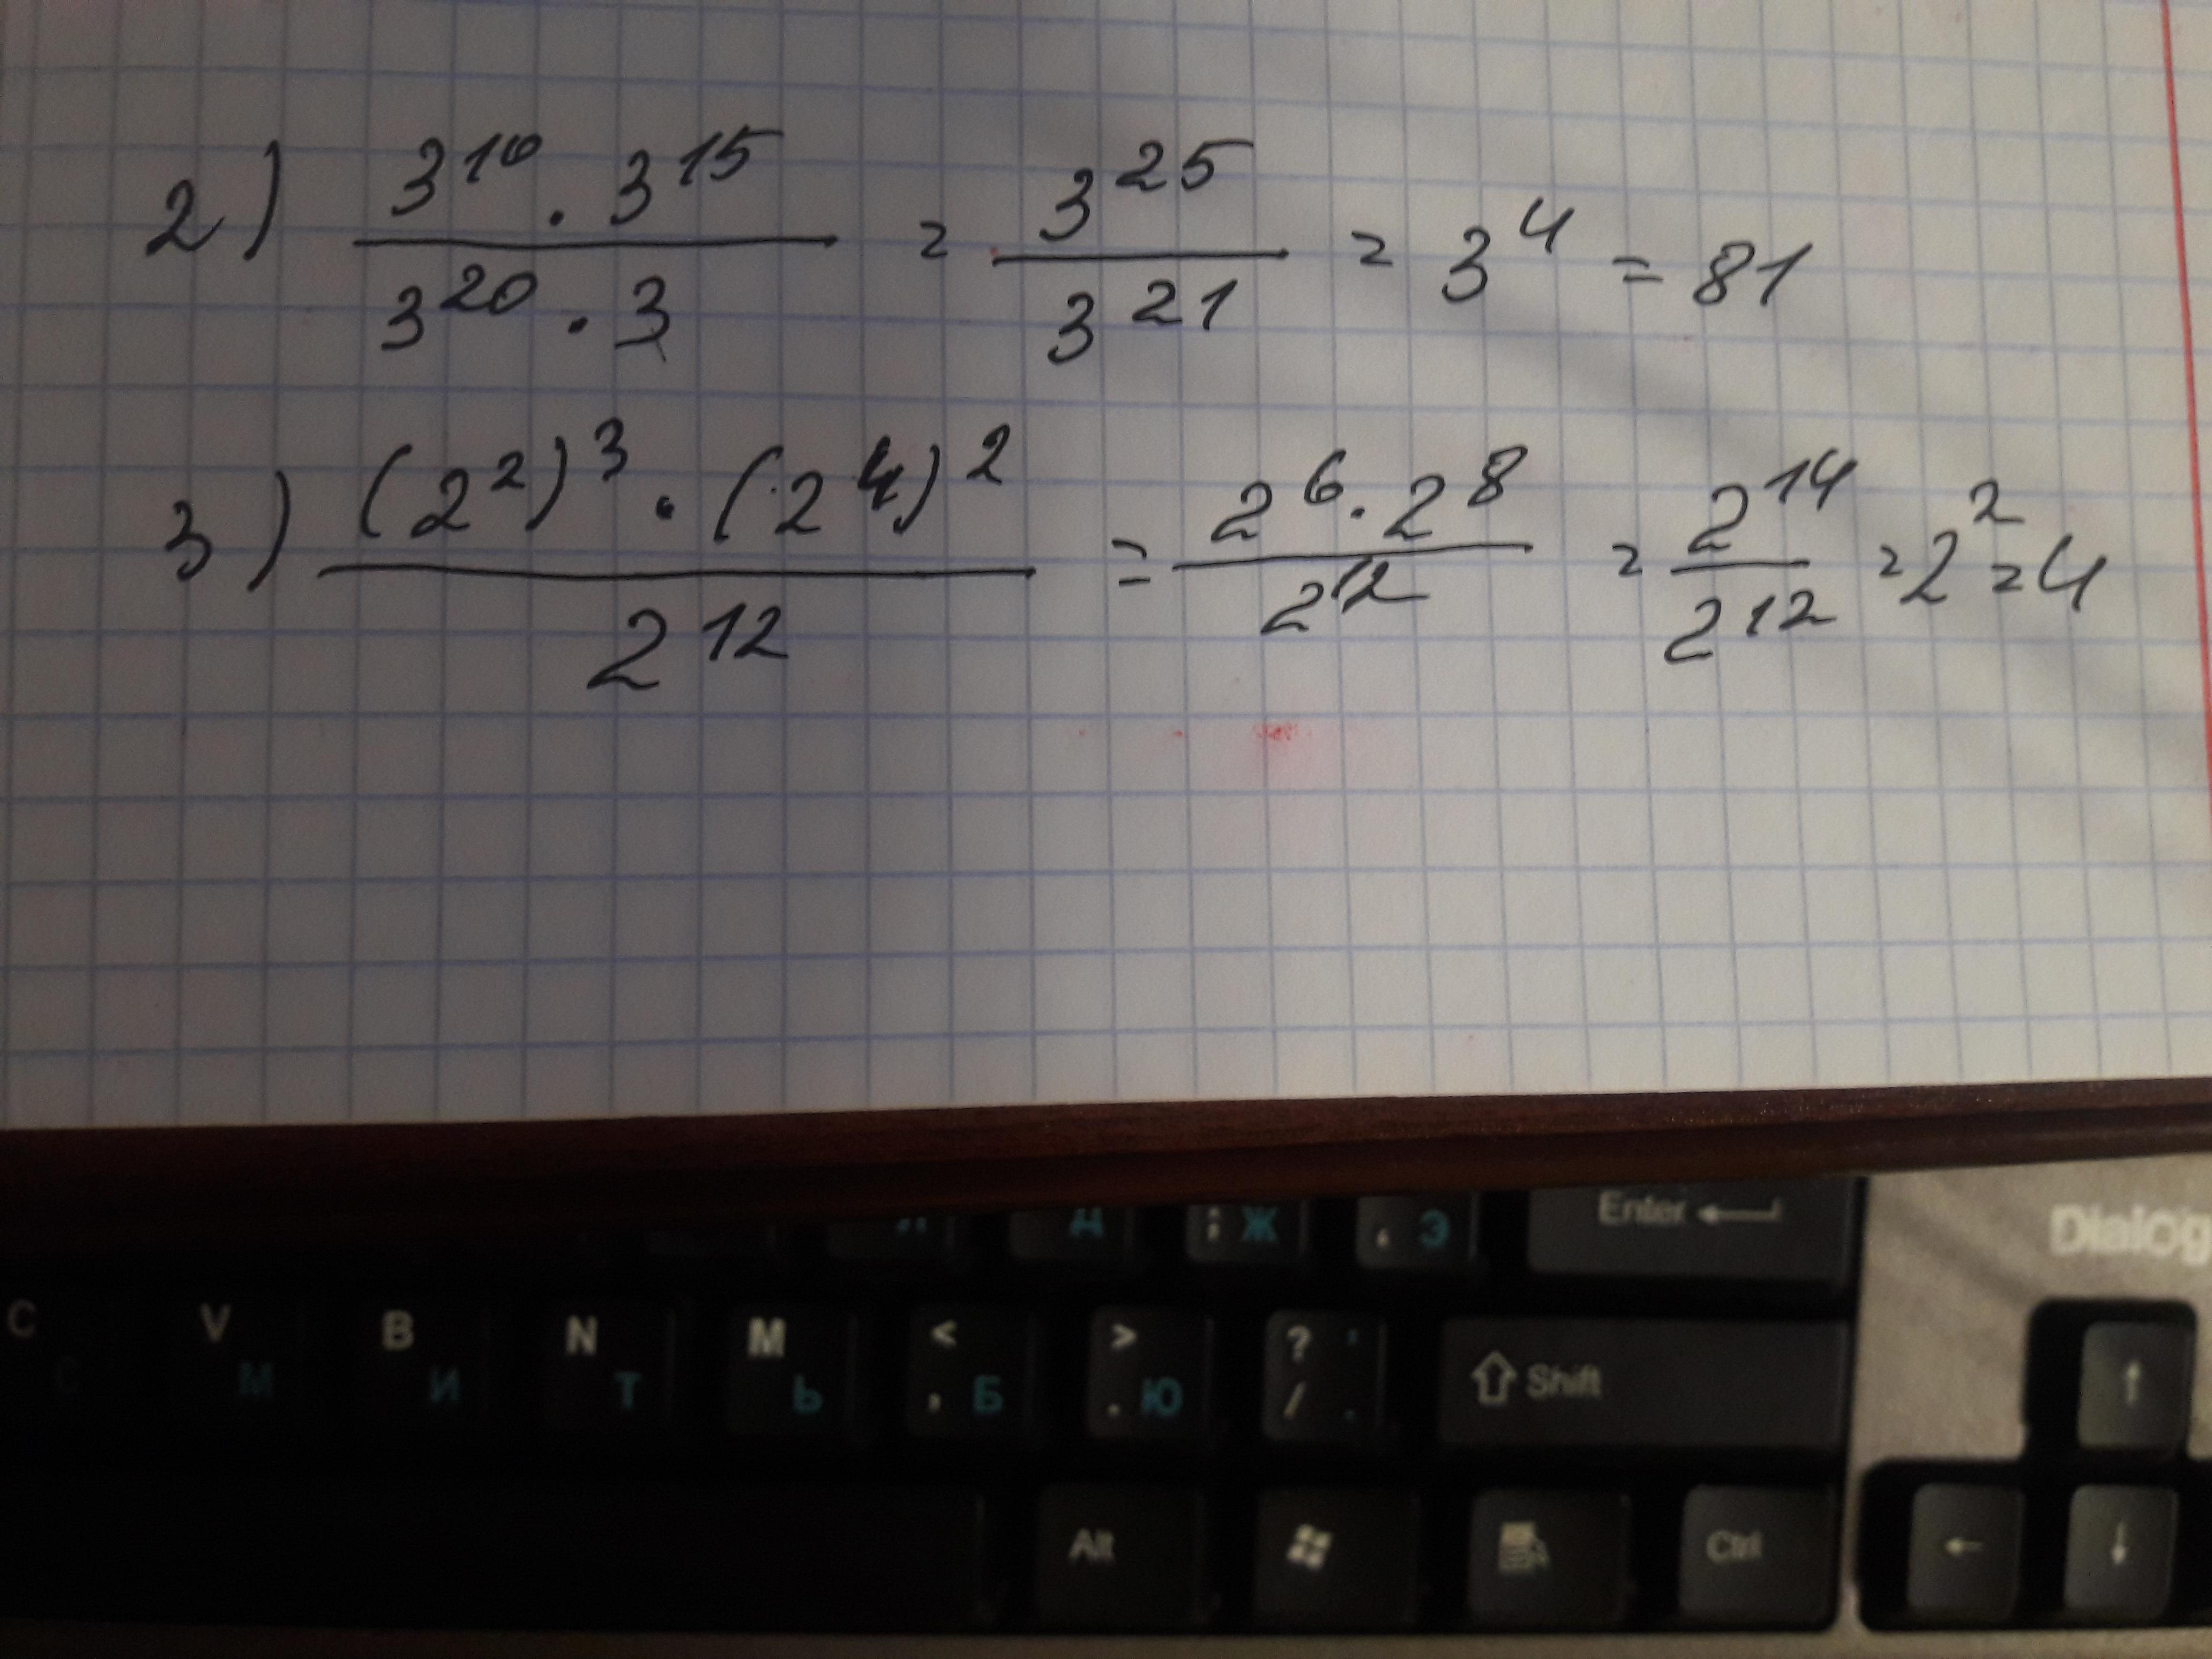 2) (3^10 · 3^15) / (3^20 · 3) = 3^25 / 3^21 = 3^4 = 81
3) ((2^2)^3 · (2^4)^2) / 2^12 = (2^6 · 2^8) / 2^12 = 2^14 / 2^12 = 2^2 = 4
Д ; Ж , Э Enter ←
Dialog
C С V М B И N Т M Ь < , Б > . Ю ? / . Shift ↑
Alt Ctrl ← ↓